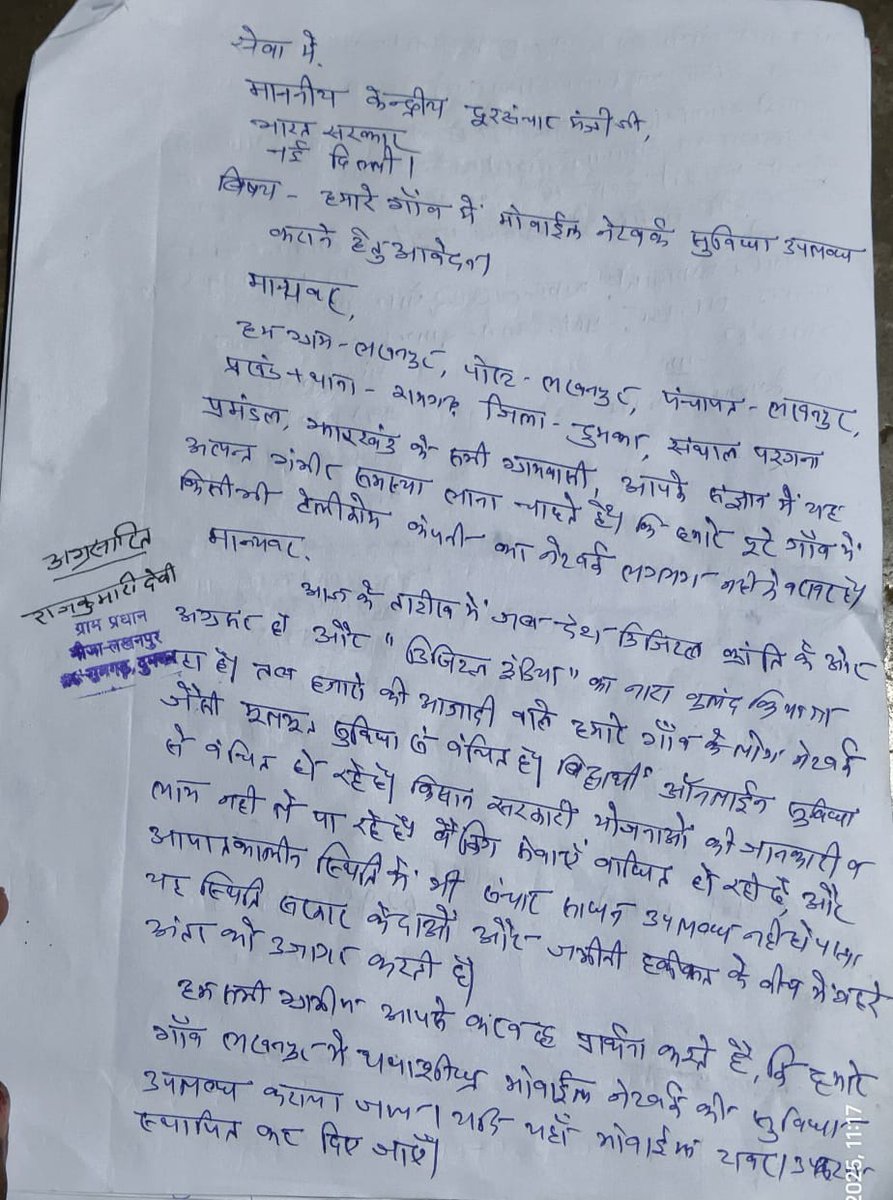 सेवा में,
माननीय केन्द्रीय दूरसंचार मंत्री जी,
भारत सरकार
नई दिल्ली।
विषय - हमारे गाँव में मोबाईल नेटवर्क सुविधा उपलब्ध
कराने हेतु आवेदन।
मान्यवर,
हम ग्राम - लखनपुर, पोस्ट - लखनपुर, पंचायत - लखनपुर,
प्रखंड + थाना - रामगढ़ जिला - दुमका, संथाल परगना
प्रमंडल, झारखंड के सभी ग्रामवासी, आपके संज्ञान में यह
अत्यन्त गंभीर समस्या लाना चाहते है। कि हमारे पूरे गाँव में
किसी भी टेलीकॉम कंपनी का नेटवर्क लगभग नहीं के बराबर है।
मान्यवर,
आज के तारीख में जब देश डिजिटल क्रांति के ओर
अग्रसर हो और "डिजिटल इंडिया" का नारा बुलंद किया जा
रहा है। तब हजारों की आजादी वाले हमारे गाँव के लोग नेटवर्क
जैसी मूलभूत सुविधा से वंचित है। विद्यार्थी ऑनलाईन सुविधा
से वंचित हो रहे है। किसान सरकारी योजनाओं की जानकारी व
लाभ नहीं ले पा रहे है। बैंकिंग सेवाएँ बाधित हो रही है, और
आपातकालीन स्थिति में भी संचार साधन उपलब्ध नहीं हो पाता
यह स्थिति सरकार के दावों और जमीनी हकीकत के बीच में गहरे
अंतर को उजागर करती है।
हम सभी ग्रामीण आपसे करबद्ध प्रार्थना करते है, कि हमारे
गाँव लखनपुर में यथाशीघ्र मोबाईल नेटवर्क की सुविधा
उपलब्ध कराया जाए। यदि यहाँ मोबाईल टावर।
स्थापित कर दिए जाएँ।
अग्रसारित
राजकुमारी देवी
ग्राम प्रधान
मौजा-लखनपुर
रामगढ़, दुमका
2025, 11:17